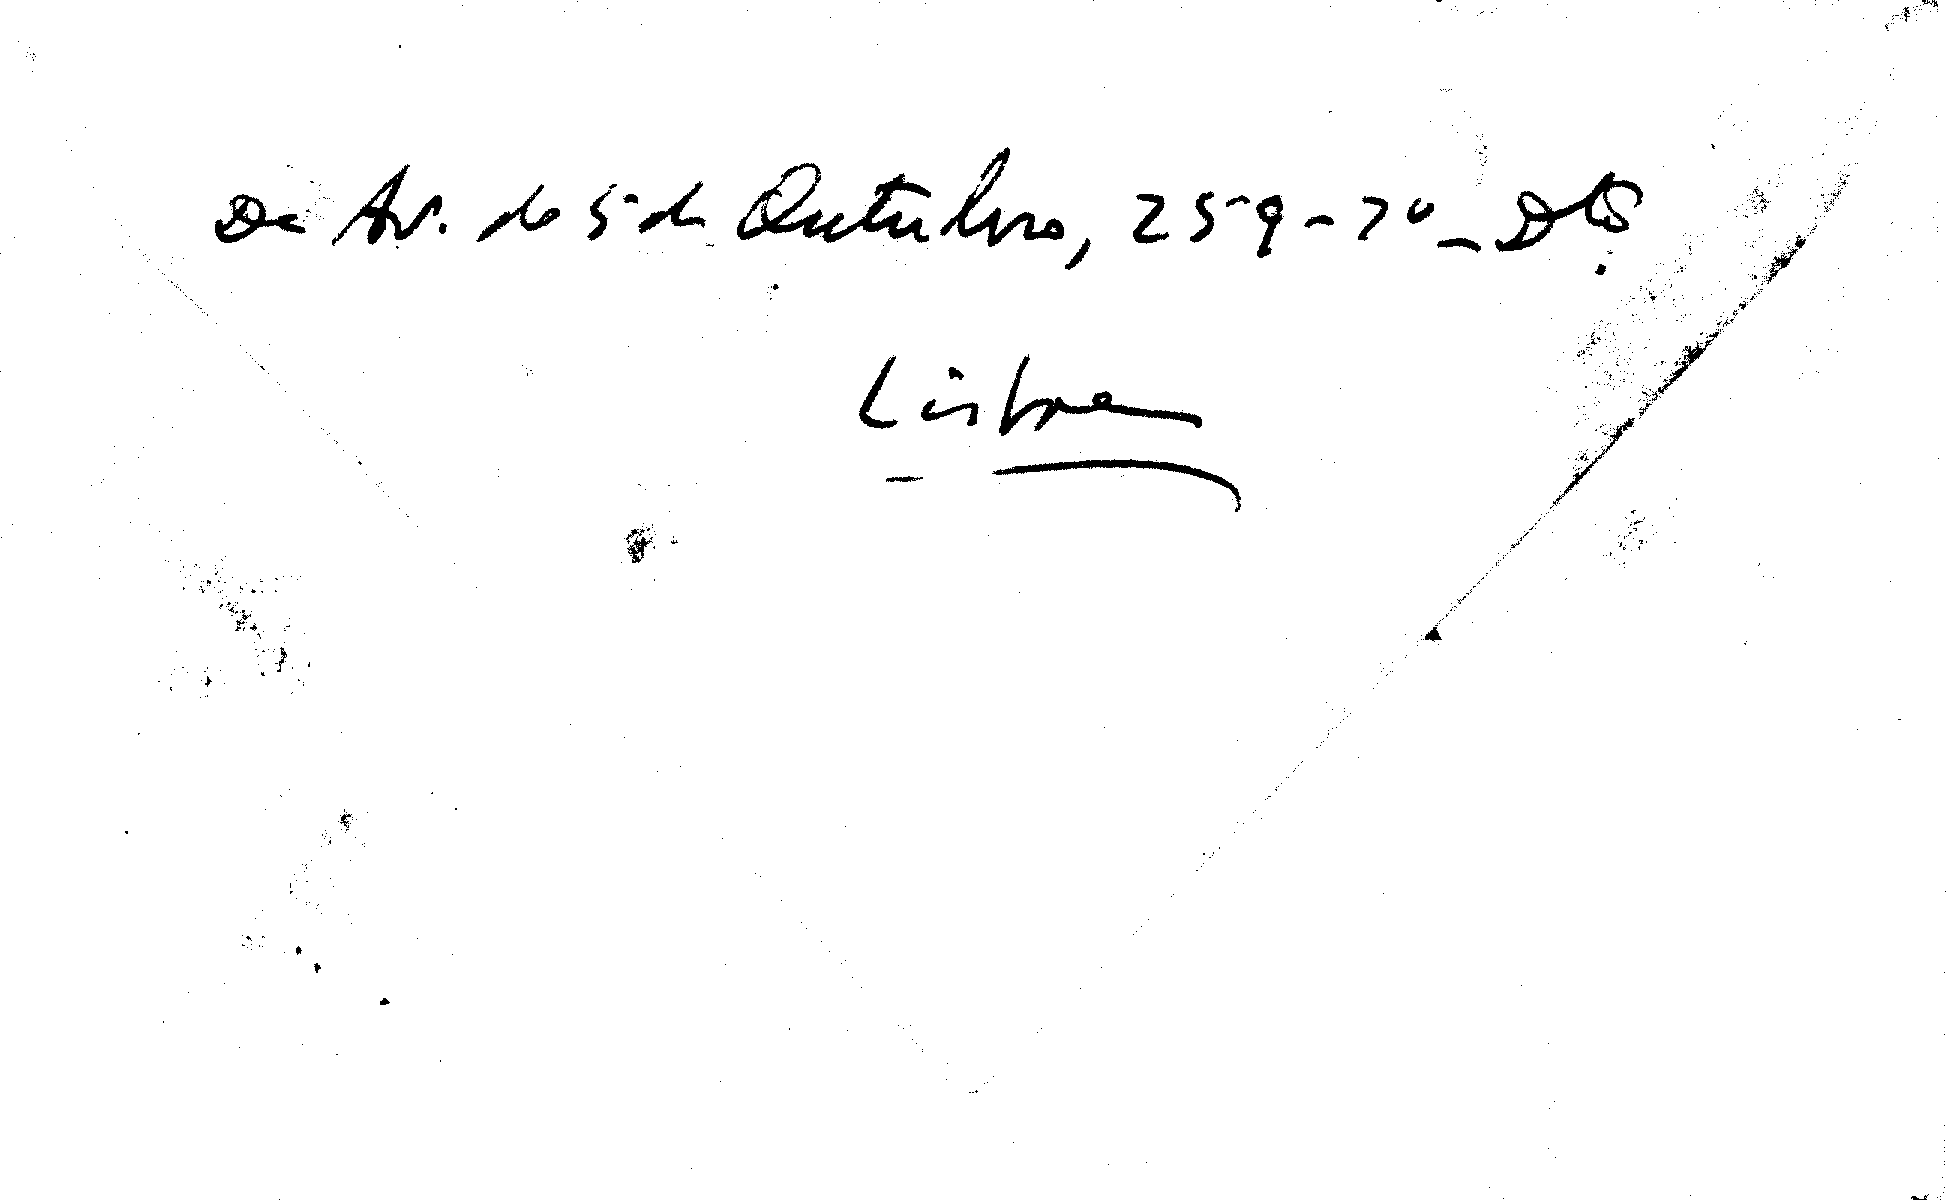 De Av. de 5 de Outubro, 259-7º_Dtº.
Lisboa